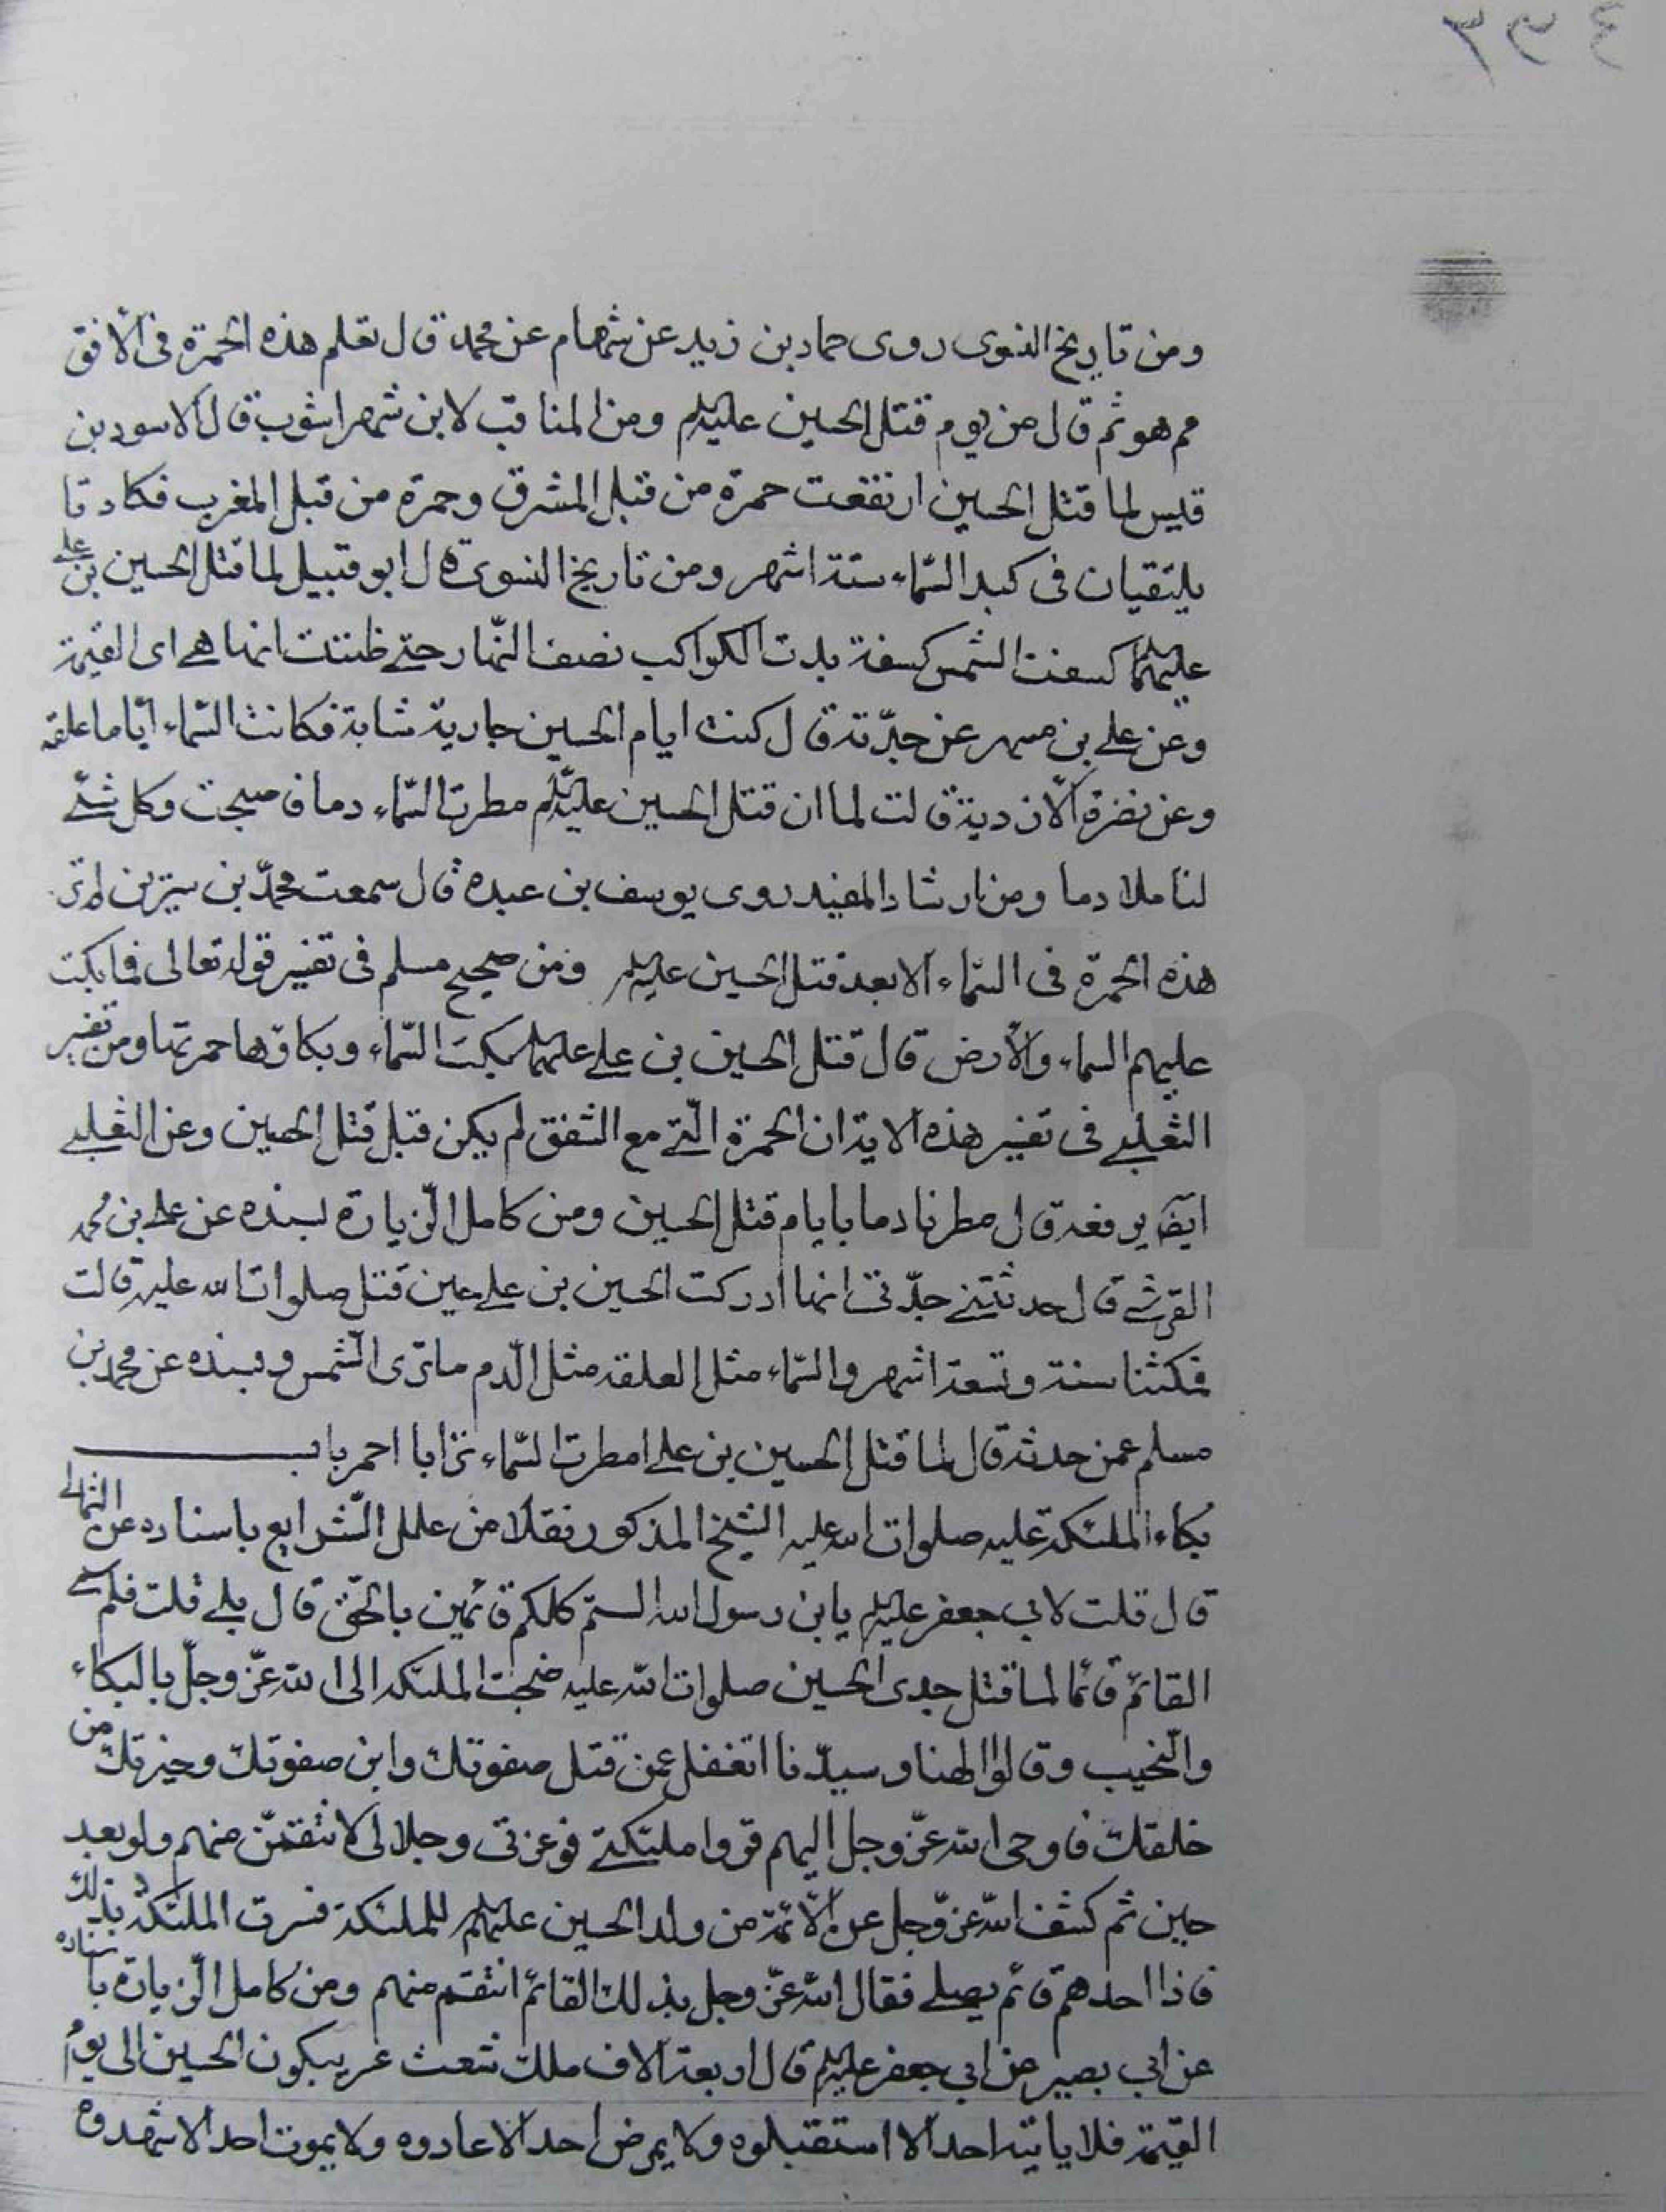 ٣٩٤
ومن تاريخ النوى روى حماد بن زيد عن هشام عن محمد قال تعلم هذه الحمرة في الأفق
مم هو ثم قال من يوم قتل الحسين عليه السلم ومن المناقب لابن شهراشوب قال الاسود بن
قيس لما قتل الحسين ارتفعت حمرة من قبل المشرق وحمرة من قبل المغرب فكادتا
يلتقيان في كبد السّماء ستة اشهر ومن تاريخ النسوى قال ابو قبيل لما قتل الحسين بن علي
عليهما كسفت الشمس كسفة بدت الكواكب نصف النّهار حتى ظننت انها هي اى القيمة
وعن علي بن مسهر عن جدّته قال كنت ايام الحسين جارية شابة فكانت السّماء ايّاما علقه
وعن نضرة الأزدية قالت لما ان قتل الحسين عليه السلم مطرت السّماء دما فاصبحت وكل شئ
لنا ملا دما ومن ارشاد المفيد روى يوسف بن عبده قال سمعت محمّد بن سيرين لم تر
هذه الحمرة في السّماء الا بعد قتل الحسين عليه السلم ومن صحيح مسلم في تفسير قوله تعالى فما بكت
عليهم السماء والأرض قال قتل الحسين بن علي عليهما بكت السّماء وبكاؤها حمرتها ومن تفسير
الثعلبي في تفسير هذه الاية ان الحمرة الّتي مع الشفق لم يكن قبل قتل الحسين وعن الثعلبي
ايضا يرفعه قال مطرنا دما بايام قتل الحسين ومن كامل الزّيارة بسنده عن علي بن محمد
القرشي قال حدثتني جدّتي انها ادركت الحسين بن علي حين قتل صلوات الله عليه قالت
فمكثنا سنة وتسعة اشهر والسّماء مثل العلقه مثل الدّم ما ترى الشّمس وبسنده عن محمد بن
مسلم عمن حدثه قال لما قتل الحسين بن علي امطرت السّماء ترابا احمر باب
بكاء الملئكة عليه صلوات الله عليه الشيخ المذكور نقلا من علل الشّرايع باسناده عن الثمالي
قال قلت لابي جعفر عليه السلم يابن رسول الله الستم كلكم قائمين بالحّق قال بلى قلت فلم سمي
القائم قائما لما قتل جدى الحسين صلوات الله عليه ضجت الملئكه الى الله عزّ وجلّ بالبكاء
والنّحيب وقالوا الهنا وسيدّنا اتغفل عمن قتل صفوتك وابن صفوتك وخيرتك من
خلقك فاوحى الله عزّ وجل اليهم قروا ملئكتي فوعزتي وجلالى لانتقمنّ منهم ولو بعد
حين ثم كشف الله عزّ وجل عن الأئمّة من ولد الحسين عليهم السلم للملئكة فسرت الملئكة بذلك
فاذا احدهم قائم يصلي فقال الله عزّ وجل بذلك القائم انتقم منهم ومن كامل الزّيارة باسناده
عن ابي بصير عن ابي جعفر عليه السلم قال اربعة الاف ملك شعث غبر يبكون الحسين الى يوم
القيمة فلا ياتيه احد الا استقبلوه ولا يمرض احد الا عادوه ولا يموت احد الا شهدوه